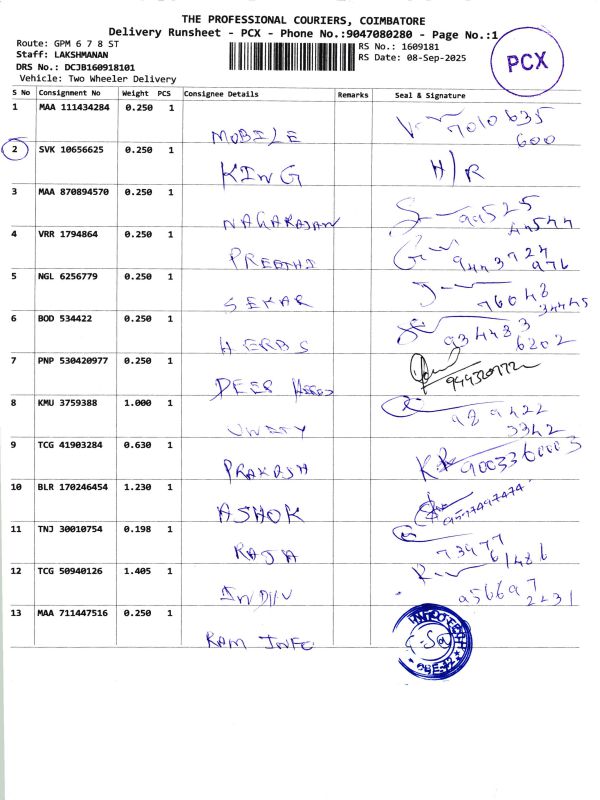 THE PROFESSIONAL COURIERS, COIMBATORE
Delivery Runsheet - PCX - Phone No.:9047080280 - Page No.:1
Route: GPM 6 7 8 ST
RS No.: 1609181
Staff: LAKSHMANAN
RS Date: 08-Sep-2025
DRS No.: DCJB160918101
Vehicle: Two Wheeler Delivery
PCX
S No Consignment No Weight PCS Consignee Details Remarks Seal & Signature
1 MAA 111434284 0.250 1
MOBILE 7010635
600
2 SVK 10656625 0.250 1
KING H/R
3 MAA 870894570 0.250 1
NAGARAJAN 99525
44544
4 VRR 1794864 0.250 1
PREETHI 9443724
976
5 NGL 6256779 0.250 1
SEKAR 76048
34445
6 BOD 534422 0.250 1
HERBS 934483
6202
7 PNP 530420977 0.250 1
DEER
8 KMU 3759388 1.000 1
UNITY 989422
3342
9 TCG 41903284 0.630 1
PRAKASH 9003360003
10 BLR 170246454 1.230 1
ASHOK
11 TNJ 30010754 0.198 1
RAJA 73977
61486
12 TCG 50940126 1.405 1
INDHU 956697
2231
13 MAA 711447516 0.250 1
RAM INFO